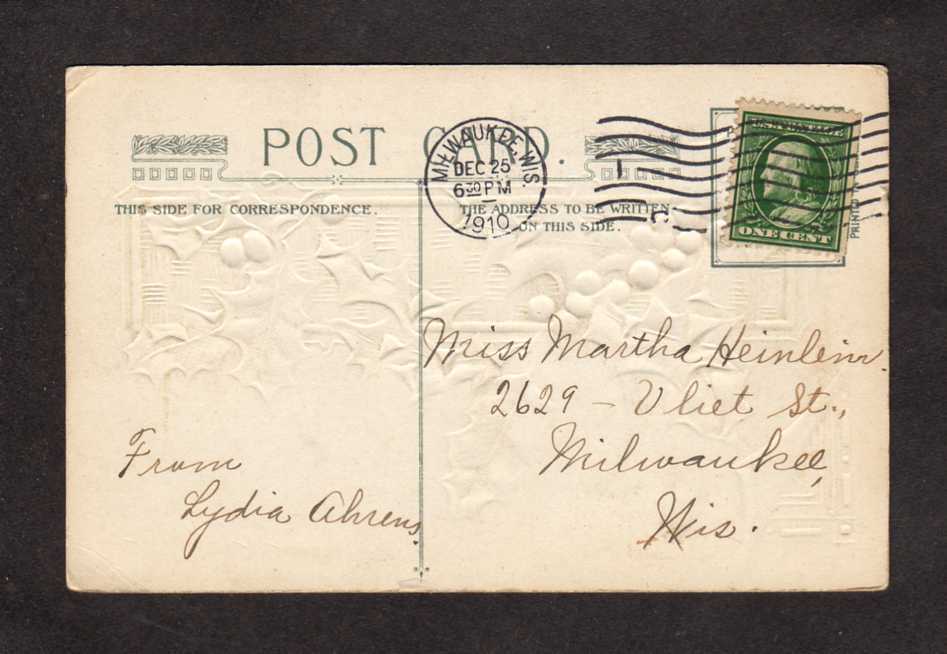 POST CARD.
MILWAUKEE, WIS.
DEC 25
6 30 PM
1910
THIS SIDE FOR CORRESPONDENCE.
THE ADDRESS TO BE WRITTEN
ON THIS SIDE.
ONE CENT
PRINTED IN
Miss Martha Heinlein.
2629 - Vliet St.,
Milwaukee,
Wis.
From
Lydia Ahrens.